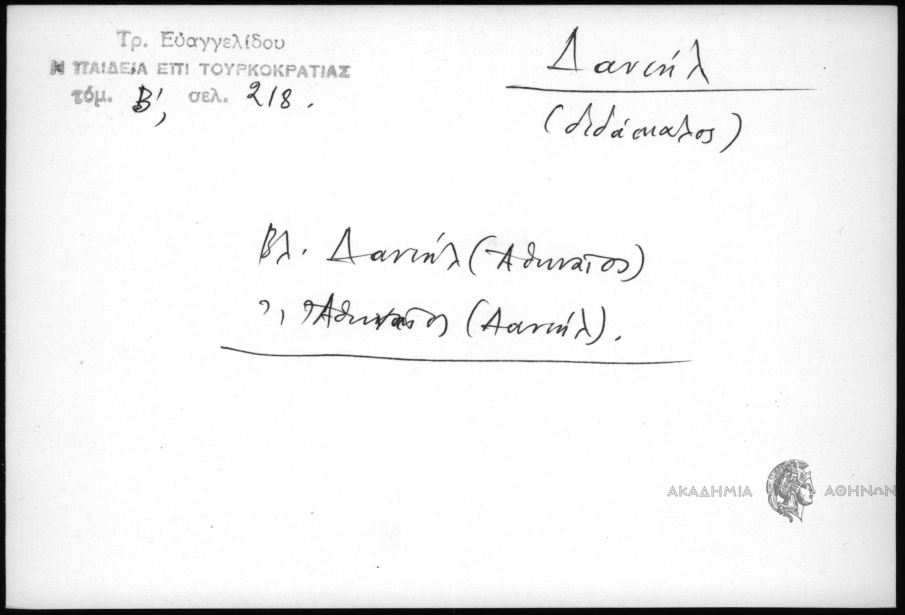 Τρ. Εὐαγγελίδου
Η ΠΑΙΔΕΙΑ ΕΠΙ ΤΟΥΡΚΟΚΡΑΤΙΑΣ
τόμ. Β', σελ. 218.
Δανιήλ
(διδάσκαλος)
Βλ. Δανιήλ (Ἀθηναῖος)
", Ἀθηναῖος (Δανιήλ).
ΑΚΑΔΗΜΙΑ ΑΘΗΝΩΝ